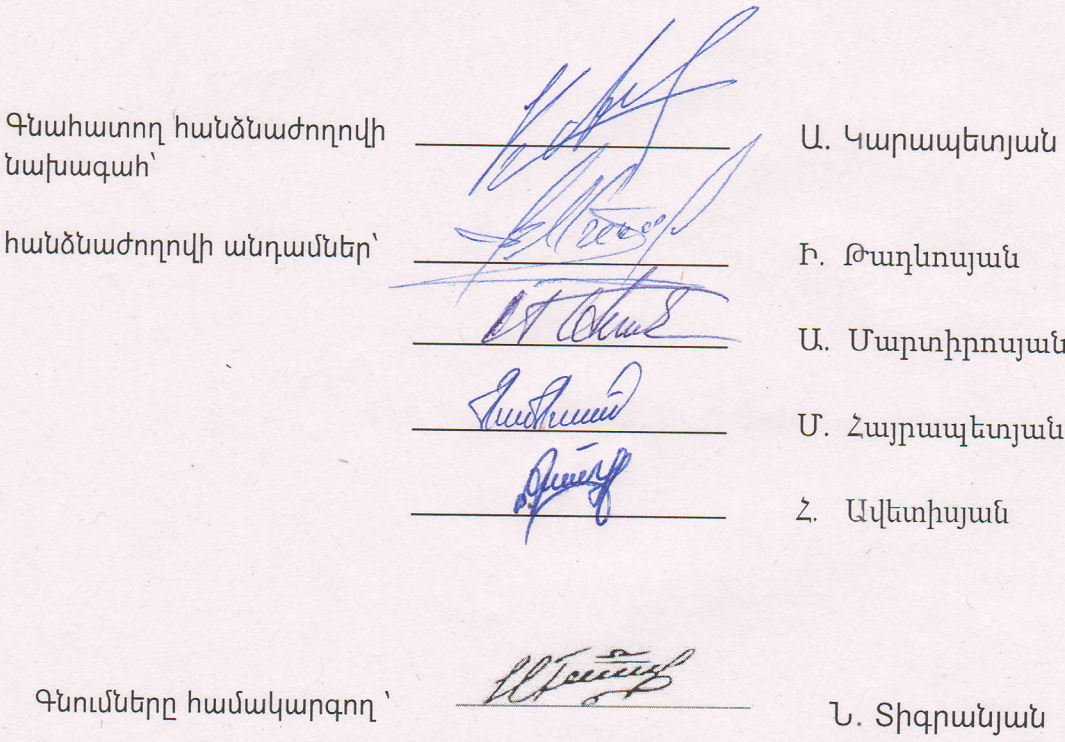 Գնահատող հանձնաժողովի
նախագահ՝
Ա. Կարապետյան
հանձնաժողովի անդամներ՝
Ի. Թադևոսյան
Ա. Մարտիրոսյան
Մ. Հայրապետյան
Հ. Ավետիսյան
Գնումները համակարգող ՝
Ն. Տիգրանյան